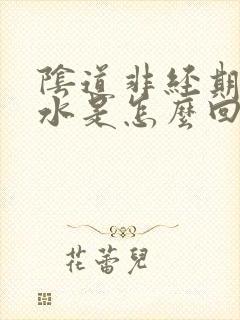 陰道非經期
水是怎麼回
花蕾兒